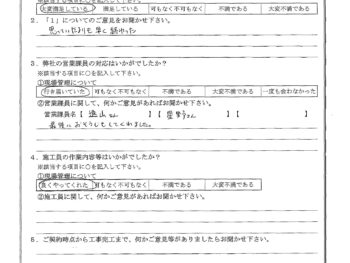 ※該当する項目に○を記入して下さい。
大変満足している 満足している 可もなく不可もなく 不満である 大変不満である
2．「1」についてのご意見をお聞かせ下さい。
思っていたよりも早く終わった
3．弊社の営業課員の対応はいかがでしたか？
※該当する項目に○を記入して下さい。
①現場管理について
行き届いていた 可もなく不可もなく 不満である 大変不満である 一度も会わなかった
②営業課員に関して、何かご意見があればお聞かせ下さい。
営業課員名【 遠山さん 】【 さん 】【 】
最後におそうじもしてくれました。
4．施工員の作業内容等はいかがでしたか？
※該当する項目に○を記入して下さい。
①現場管理について
良くやってくれた 可もなく不可もなく 不満である 大変不満である
②施工員に関して、何かご意見があればお聞かせ下さい。
5．ご契約時点から工事完工まで、何かご意見等がありましたらお聞かせ下さい。